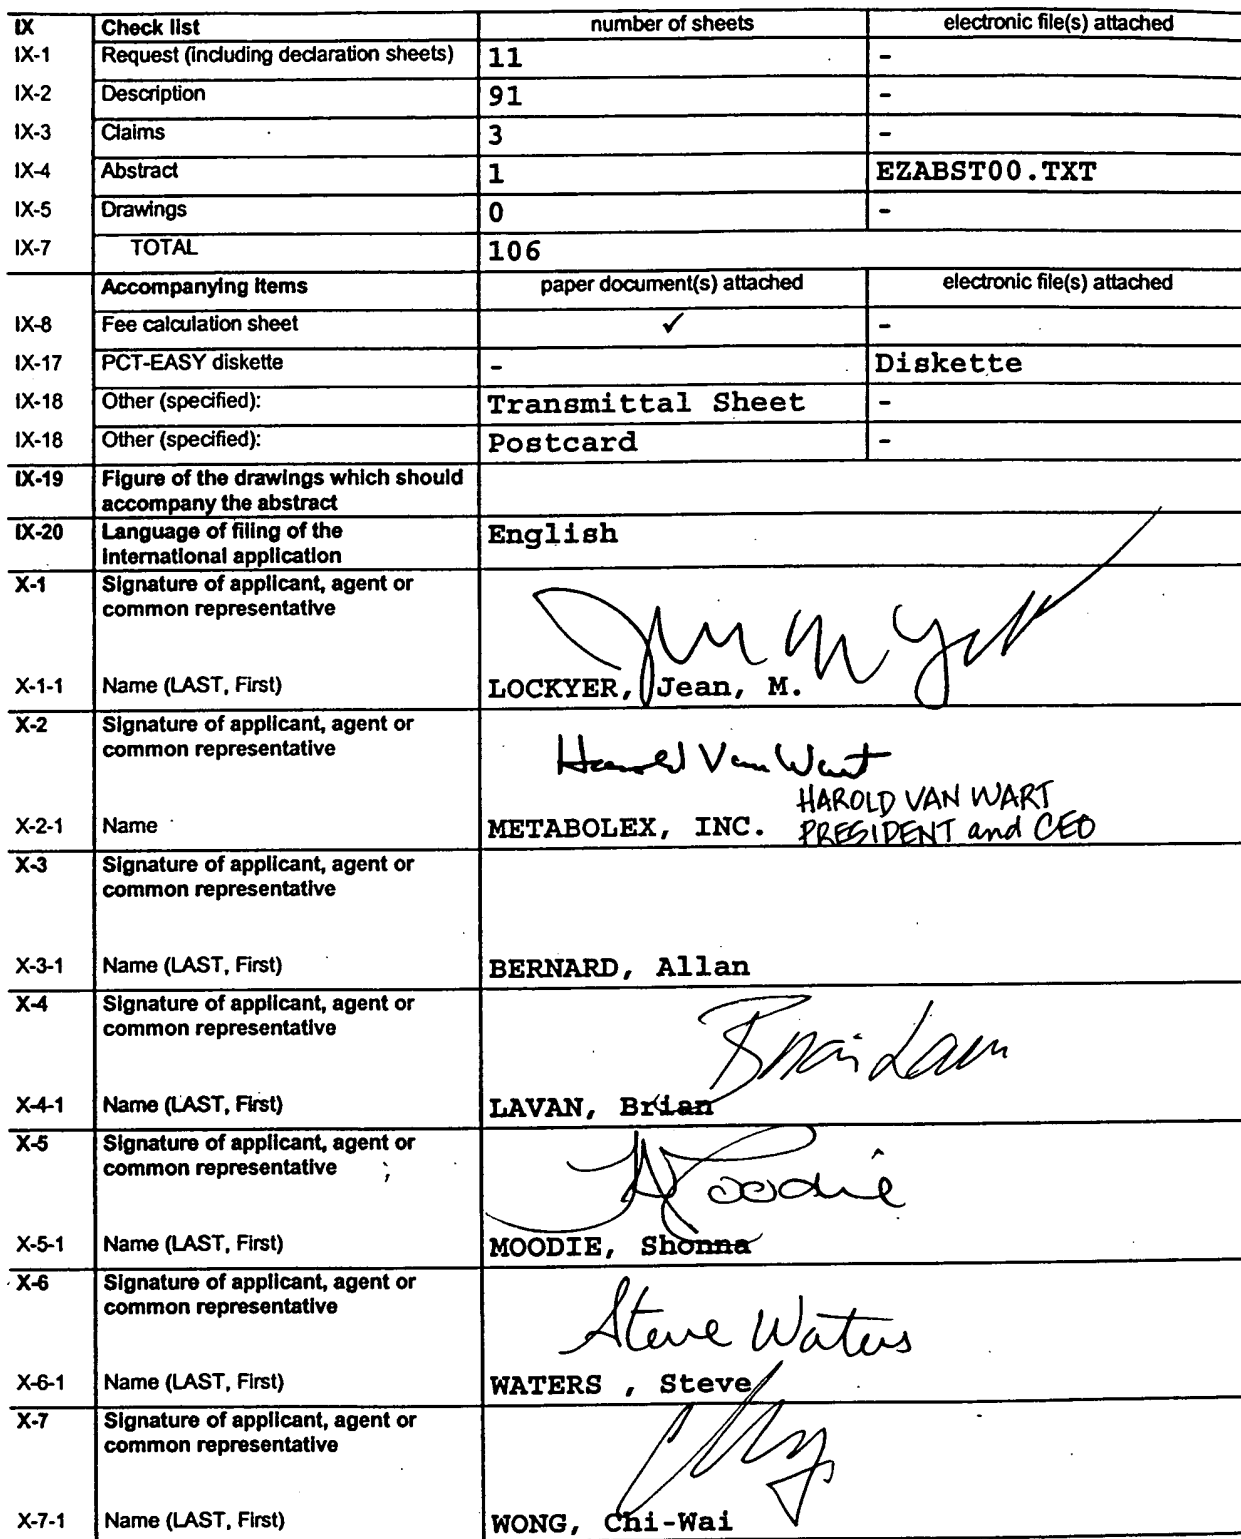 IX Check list number of sheets electronic file(s) attached
IX-1 Request (including declaration sheets) 11 -
IX-2 Description 91 -
IX-3 Claims 3 -
IX-4 Abstract 1 EZABST00.TXT
IX-5 Drawings 0 -
IX-7 TOTAL 106
Accompanying Items paper document(s) attached electronic file(s) attached
IX-8 Fee calculation sheet ✓ -
IX-17 PCT-EASY diskette - Diskette
IX-18 Other (specified): Transmittal Sheet -
IX-18 Other (specified): Postcard -
IX-19 Figure of the drawings which should
accompany the abstract
IX-20 Language of filing of the English
international application
X-1 Signature of applicant, agent or
common representative
X-1-1 Name (LAST, First) LOCKYER, Jean, M.
X-2 Signature of applicant, agent or
common representative
Harold Van Wart
HAROLD VAN WART
X-2-1 Name METABOLEX, INC. PRESIDENT and CEO
X-3 Signature of applicant, agent or
common representative
X-3-1 Name (LAST, First) BERNARD, Allan
X-4 Signature of applicant, agent or
common representative
Brian Lavan
X-4-1 Name (LAST, First) LAVAN, Brian
X-5 Signature of applicant, agent or
common representative
Moodie
X-5-1 Name (LAST, First) MOODIE, Shonna
X-6 Signature of applicant, agent or
common representative
Steve Waters
X-6-1 Name (LAST, First) WATERS , Steve
X-7 Signature of applicant, agent or
common representative
X-7-1 Name (LAST, First) WONG, Chi-Wai